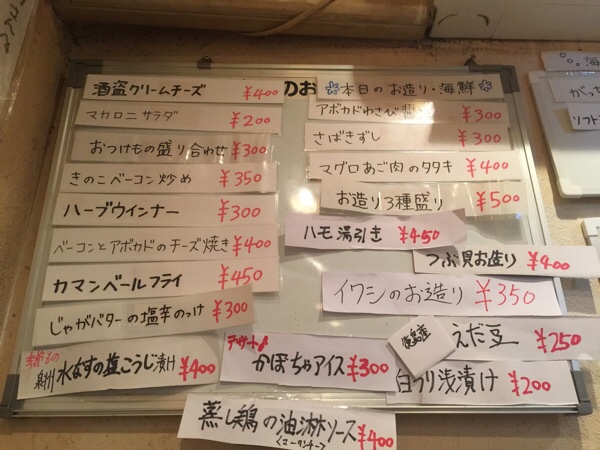 酒盗クリームチーズ ¥400
マカロニサラダ ¥200
おつけもの盛り合わせ ¥300
きのこベーコン炒め ¥350
ハーブウインナー ¥300
ベーコンとアボカドのチーズ焼き ¥400
カマンベールフライ ¥450
じゃがバターの塩辛のっけ ¥300
泉州水なすの塩こうじ漬け ¥400
のお
本日のお造り・海鮮
アボカドわさび ¥300
さばきずし ¥300
マグロあご肉のタタキ ¥400
お造り3種盛り ¥500
ハモ湯引き ¥450
つぶ貝お造り ¥400
イワシのお造り ¥350
えだ豆 ¥250
デザート♪
かぼちゃアイス ¥300
白うり浅漬け ¥200
蒸し鶏の油淋ソース ¥400
<ユーリンチー>
海
がっち
ソフト